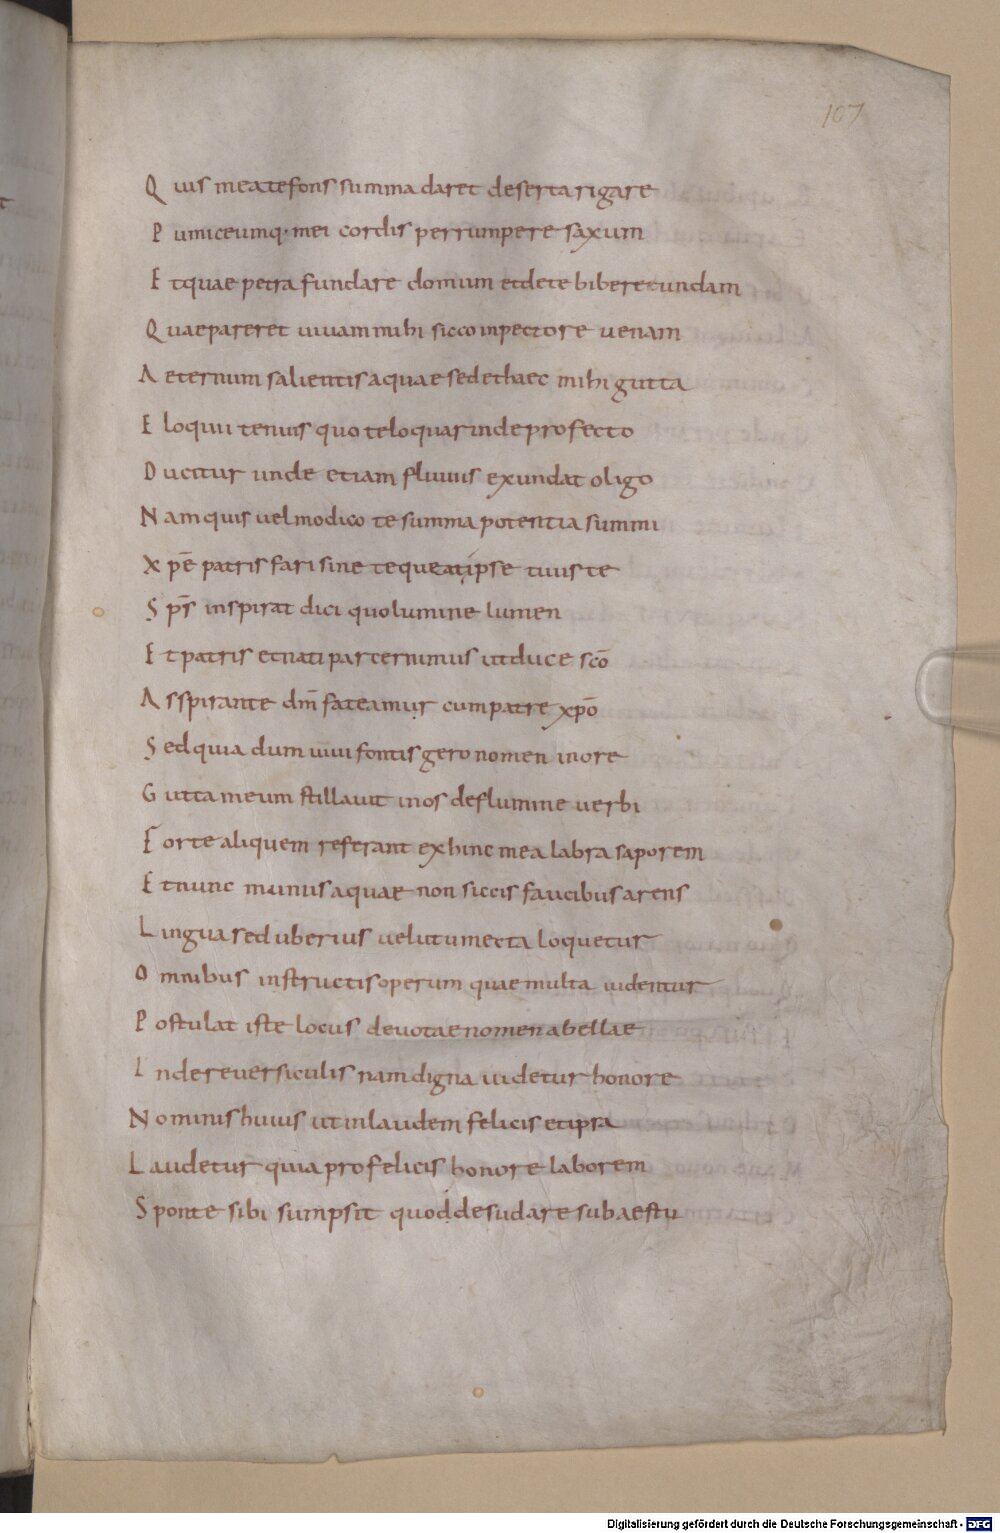 107
Quis mea te fons summa daret deserta rigare
Pumiceumq· mei cordis perrumpere saxum
Et quae petra fundare domum et de te bibere undam
Quae pareret uiuam mihi sicco in pectore uenam
Aeternum salientis aquae sed et haec mihi gutta
Eloquii tenuis quo te loquar inde profecto
Ducitur unde etiam fluuius exundat oligo
Nam quis uel modico te summa potentia summi
Xpē patris fari sine te queat ipse tuus te
Sps̄ inspirat dici quo lumine lumen
Et patris et nati par cernimus ut duce scō
Asspirante dm̄ fateamur cum patre xpō
Sed quia dum uiui fontis gero nomen in ore
Gutta meum stillauit in os de flumine uerbi
Forte aliquem referant exhinc mea labra saporem
Et nunc munus aquae non siccis faucibus arens
Lingua sed uberius uelut umecta loquetur
Omnibus instructis operum quae multa uidentur
Postulat iste locus deuotae nomen abellae
Indere uersiculis nam digna uidetur honore
Nominis huius ut in laudem felicis et ipsa
Laudetur quia pro felicis honore laborem
Sponte sibi sumpsit quod desudare sub aestu
Digitalisierung gefördert durch die Deutsche Forschungsgemeinschaft - DFG